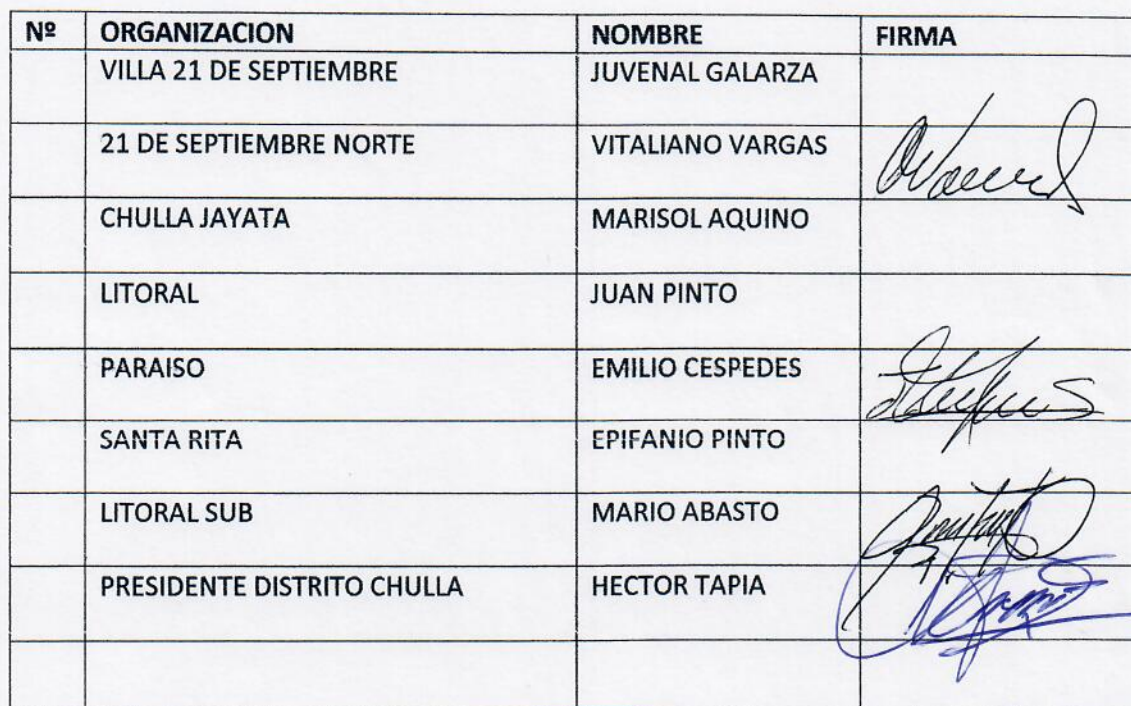 Nº ORGANIZACION NOMBRE FIRMA
VILLA 21 DE SEPTIEMBRE JUVENAL GALARZA
21 DE SEPTIEMBRE NORTE VITALIANO VARGAS
CHULLA JAYATA MARISOL AQUINO
LITORAL JUAN PINTO
PARAISO EMILIO CESPEDES
SANTA RITA EPIFANIO PINTO
LITORAL SUB MARIO ABASTO
PRESIDENTE DISTRITO CHULLA HECTOR TAPIA